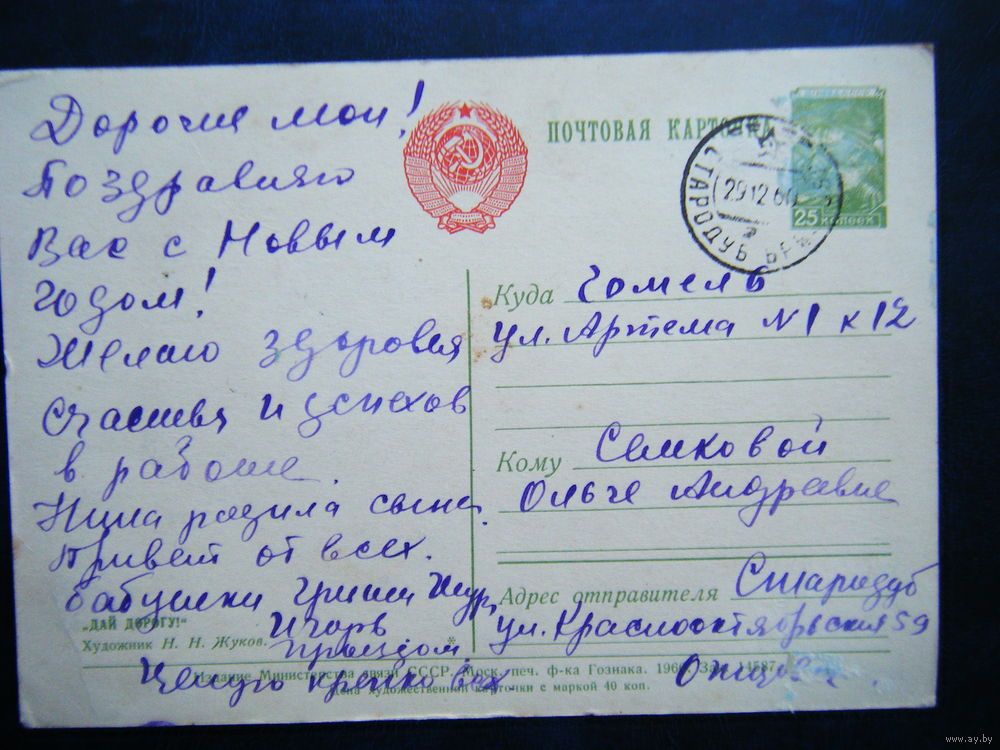 Дорогие мои!
Поздравляю
Вас с Новым
годом!
Желаю здоровья
счастья и успехов
в работе.
Нина родила сына.
Привет от всех.
бабушки Гриши
Игорь
Целую крепко вас.
"ДАЙ ДОРОГУ!"
Художник Н. Н. Жуков.
Издание Министерства связи СССР. Моск. печ. ф-ка Гознака. 1960. Зак. 14587.
Цена художественной карточки с маркой 40 коп.
ПОЧТОВАЯ КАРТОЧКА
25 КОПЕЕК
СТАРОДУБ
29 12 60
Куда Гомель
ул. Артема N1 к 12
Кому Семковой
Ольге Андреевне
Адрес отправителя Стародуб
ул. Краснооктябрьская 59
www.ay.by